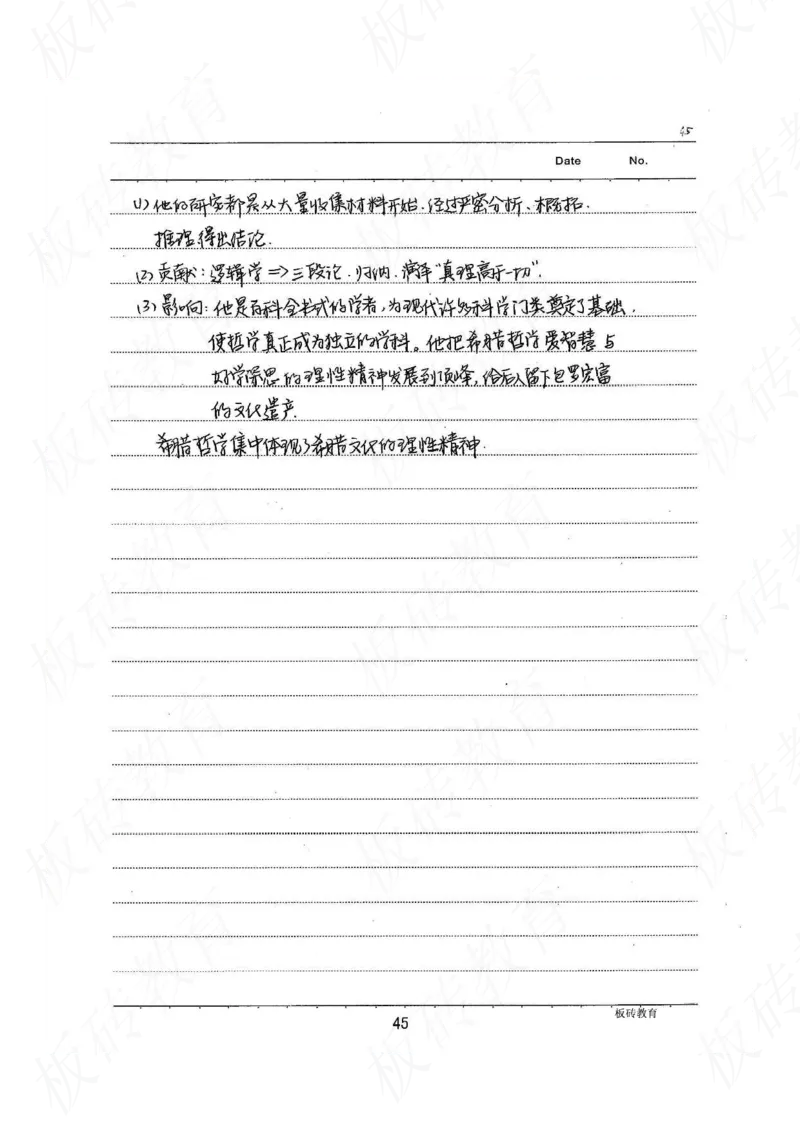 45
Date No.
(1) 他的研究都是从大量收集材料开始.经过严密分析、概括.
推理得出结论.
(2) 贡献:逻辑学=>三段论.归纳.演绎"真理高于一切".
(3) 影响:他是百科全书式的学者,为现代许多科学门类奠定了基础.
使哲学真正成为独立的学科。他把希腊哲学爱智慧与
好学深思的理性精神发展到顶峰,给后人留下包罗宏富
的文化遗产.
希腊哲学集中体现了希腊文化的理性精神.
板砖教育
45